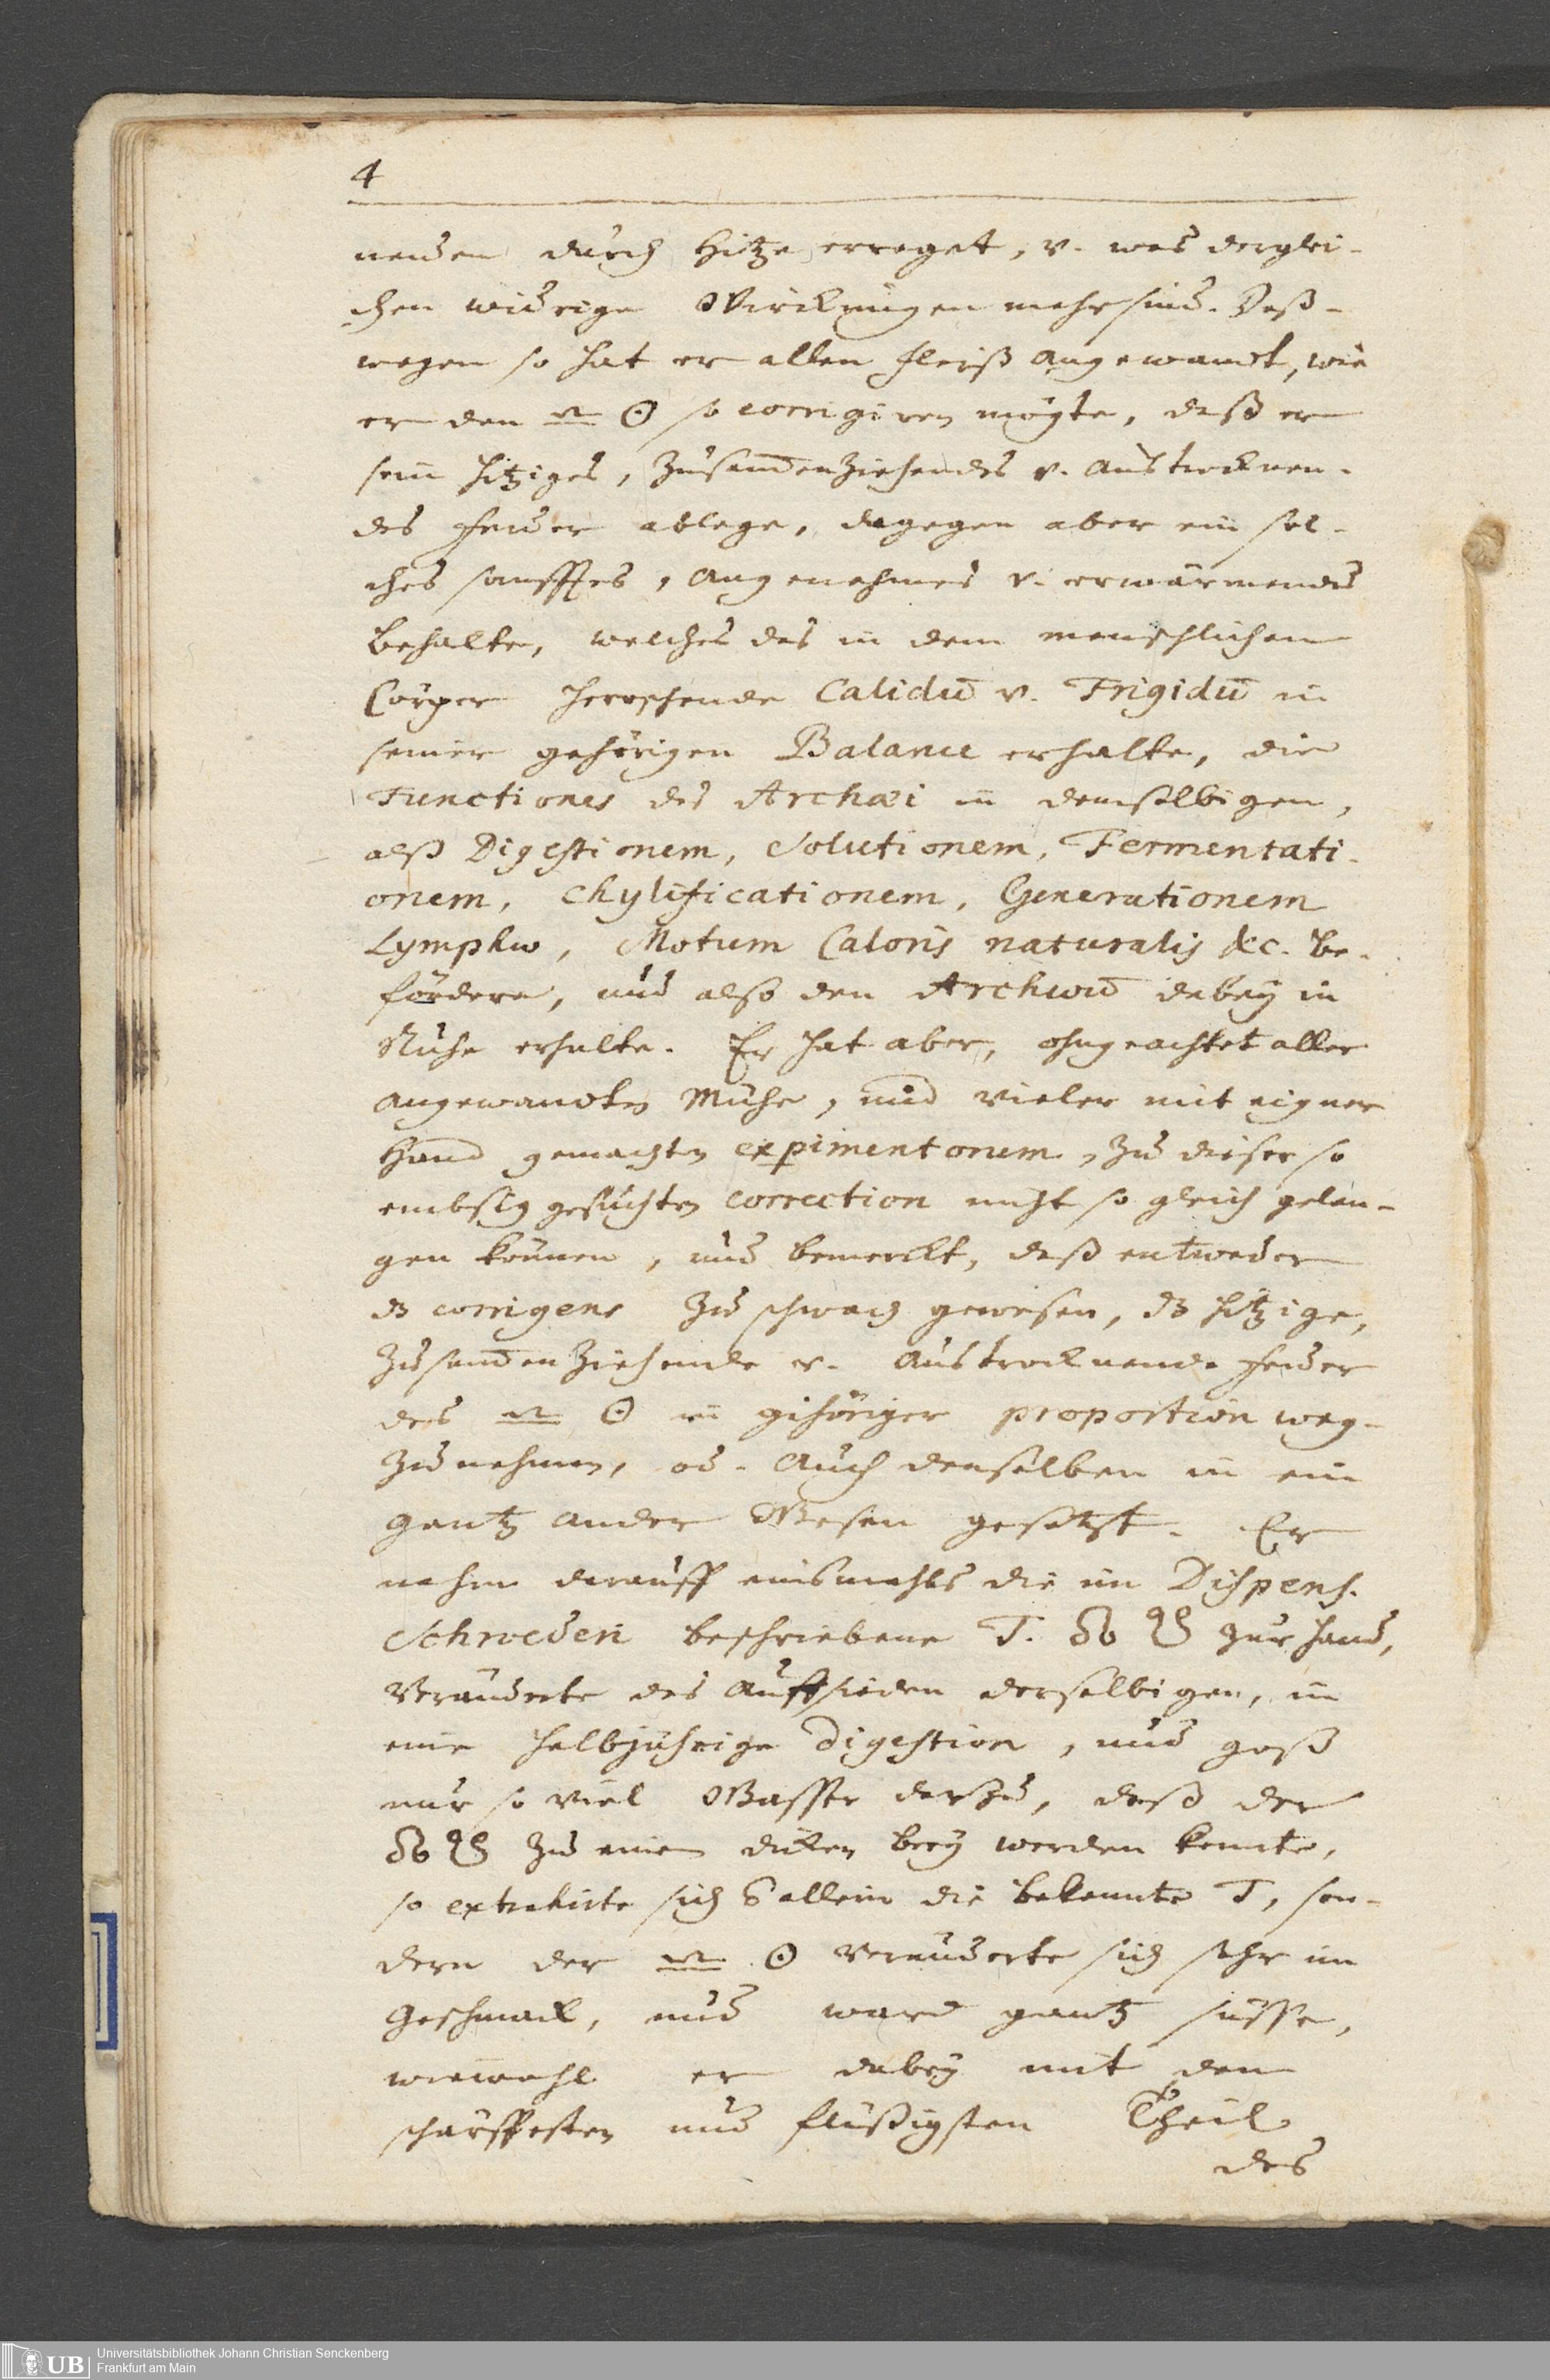 4
neuden durch Hitze erreget, v. was dergleichen
chen widrige Wirckungen mehr sind. Deß-
wegen so hat er allen fleiß angewandt, wie
er den ☉ so corrigiren mögte, daß er
sein hitziges, zusam̅enziehendes v. austrocknen-
des feuer ablege, dagegen aber ein sol-
ches sanfftes, angenehmes v. erwärmendes
behalte, welches das in dem menschlichen
Cörper herrschende Calidum̅ v. Frigidum̅ in
seiner gehörigen Balance erhalte, die
Functiones des Archæi in demselbigen,
alß Digestionem, Solutionem, Fermentati-
onem, Chylificationem, Generationem
Lymphæ, Motum Caloris naturalis &c. be-
fördere, und also den Archæum̅ dabey in
Ruhe erhalte. Er hat aber, ohngeachtet aller
angewandten Mühe, und vieler mit eigner
Hand gemachten expimentorum, zu dieser so
embsig gesuchten correction nicht so gleich gelan-
gen können, und bemerckt, daß entweder
dz corrigens zu schwach gewesen, dz hitzige,
zusam̅enziehende v. austrocknende feuer
des ☉ in gehöriger proportion weg-
zunehmen, od. auch denselben in ein
gantz ander Wesen gesetzt. Er
nahm darauff einsmahls die im Dispens.
Schroederi beschriebene T. zur Hand,
veränderte das auffsieden derselbigen, in
eine halbjährige Digestion, und goß
nur so viel Wasser darzu, daß der
zu einem dicken brey werden konte,
so extrahirte sich allein die bekannte T, son-
dern der ☉ veränderte sich sehr im
Geschmack, und ward gantz süsse,
wiewohl er dabey mit dem
schärffesten und flüßigsten Theil
des
Universitätsbibliothek Johann Christian Senckenberg
Frankfurt am Main
UB